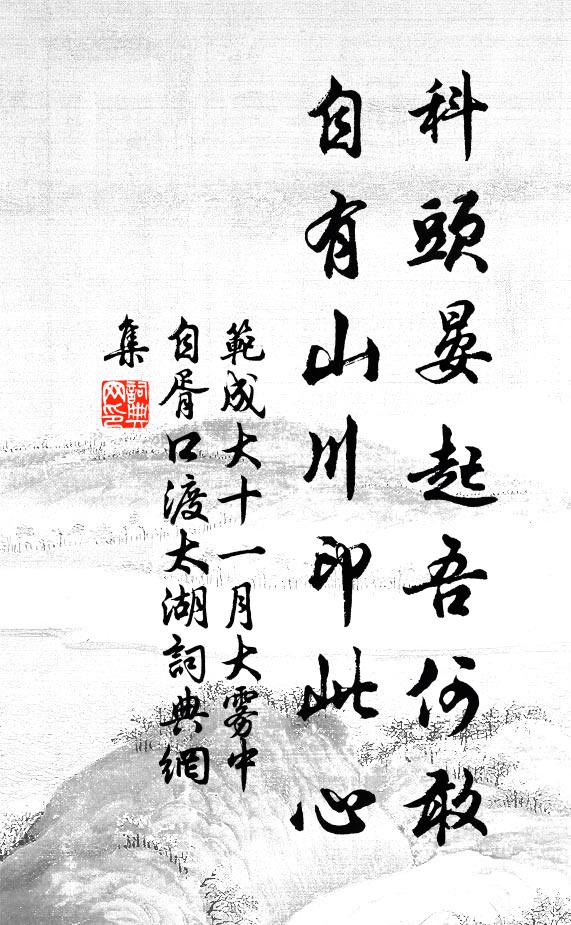 科頭晏起吾何敢
自有山川印此心
範成大十一月大霧中
自胥口渡太湖詞典網
集
詞典網印